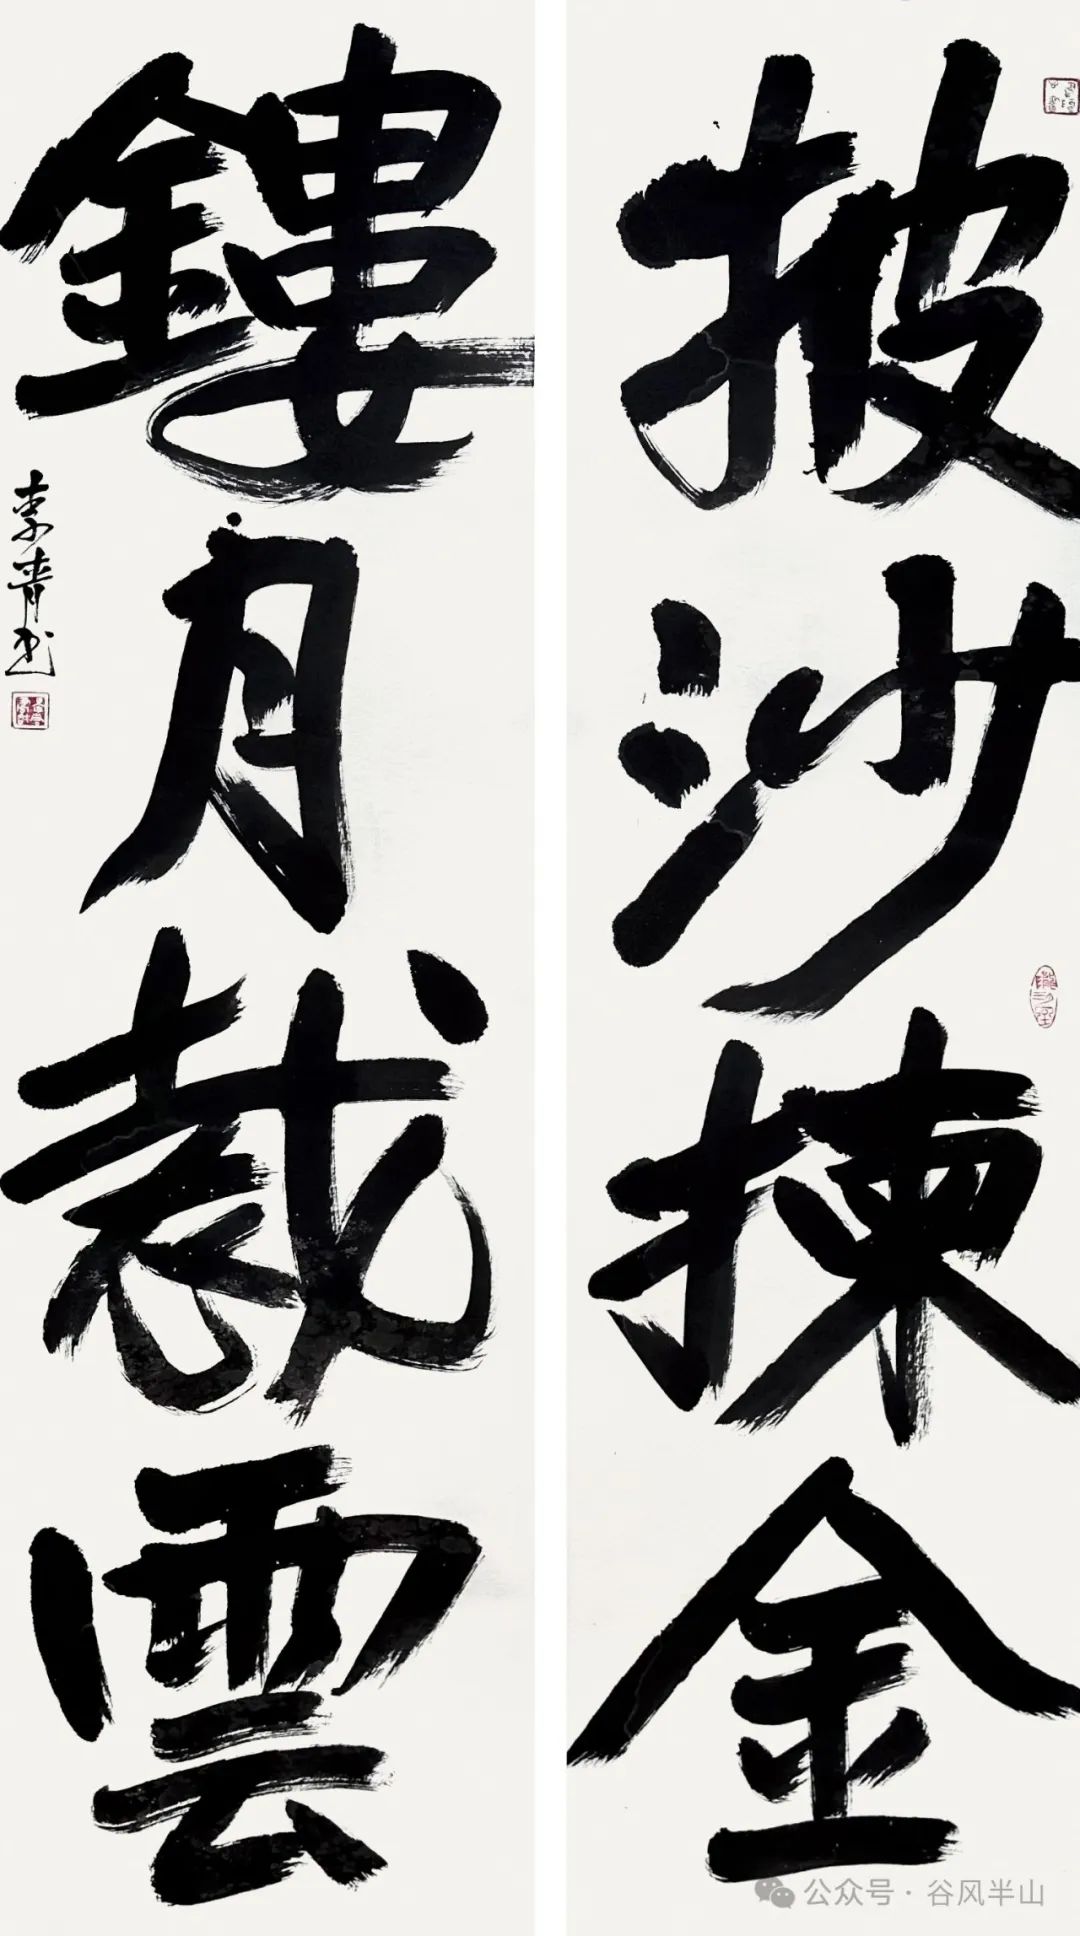 披沙揀金
鏤月裁雲
李青书
公众号·谷风半山